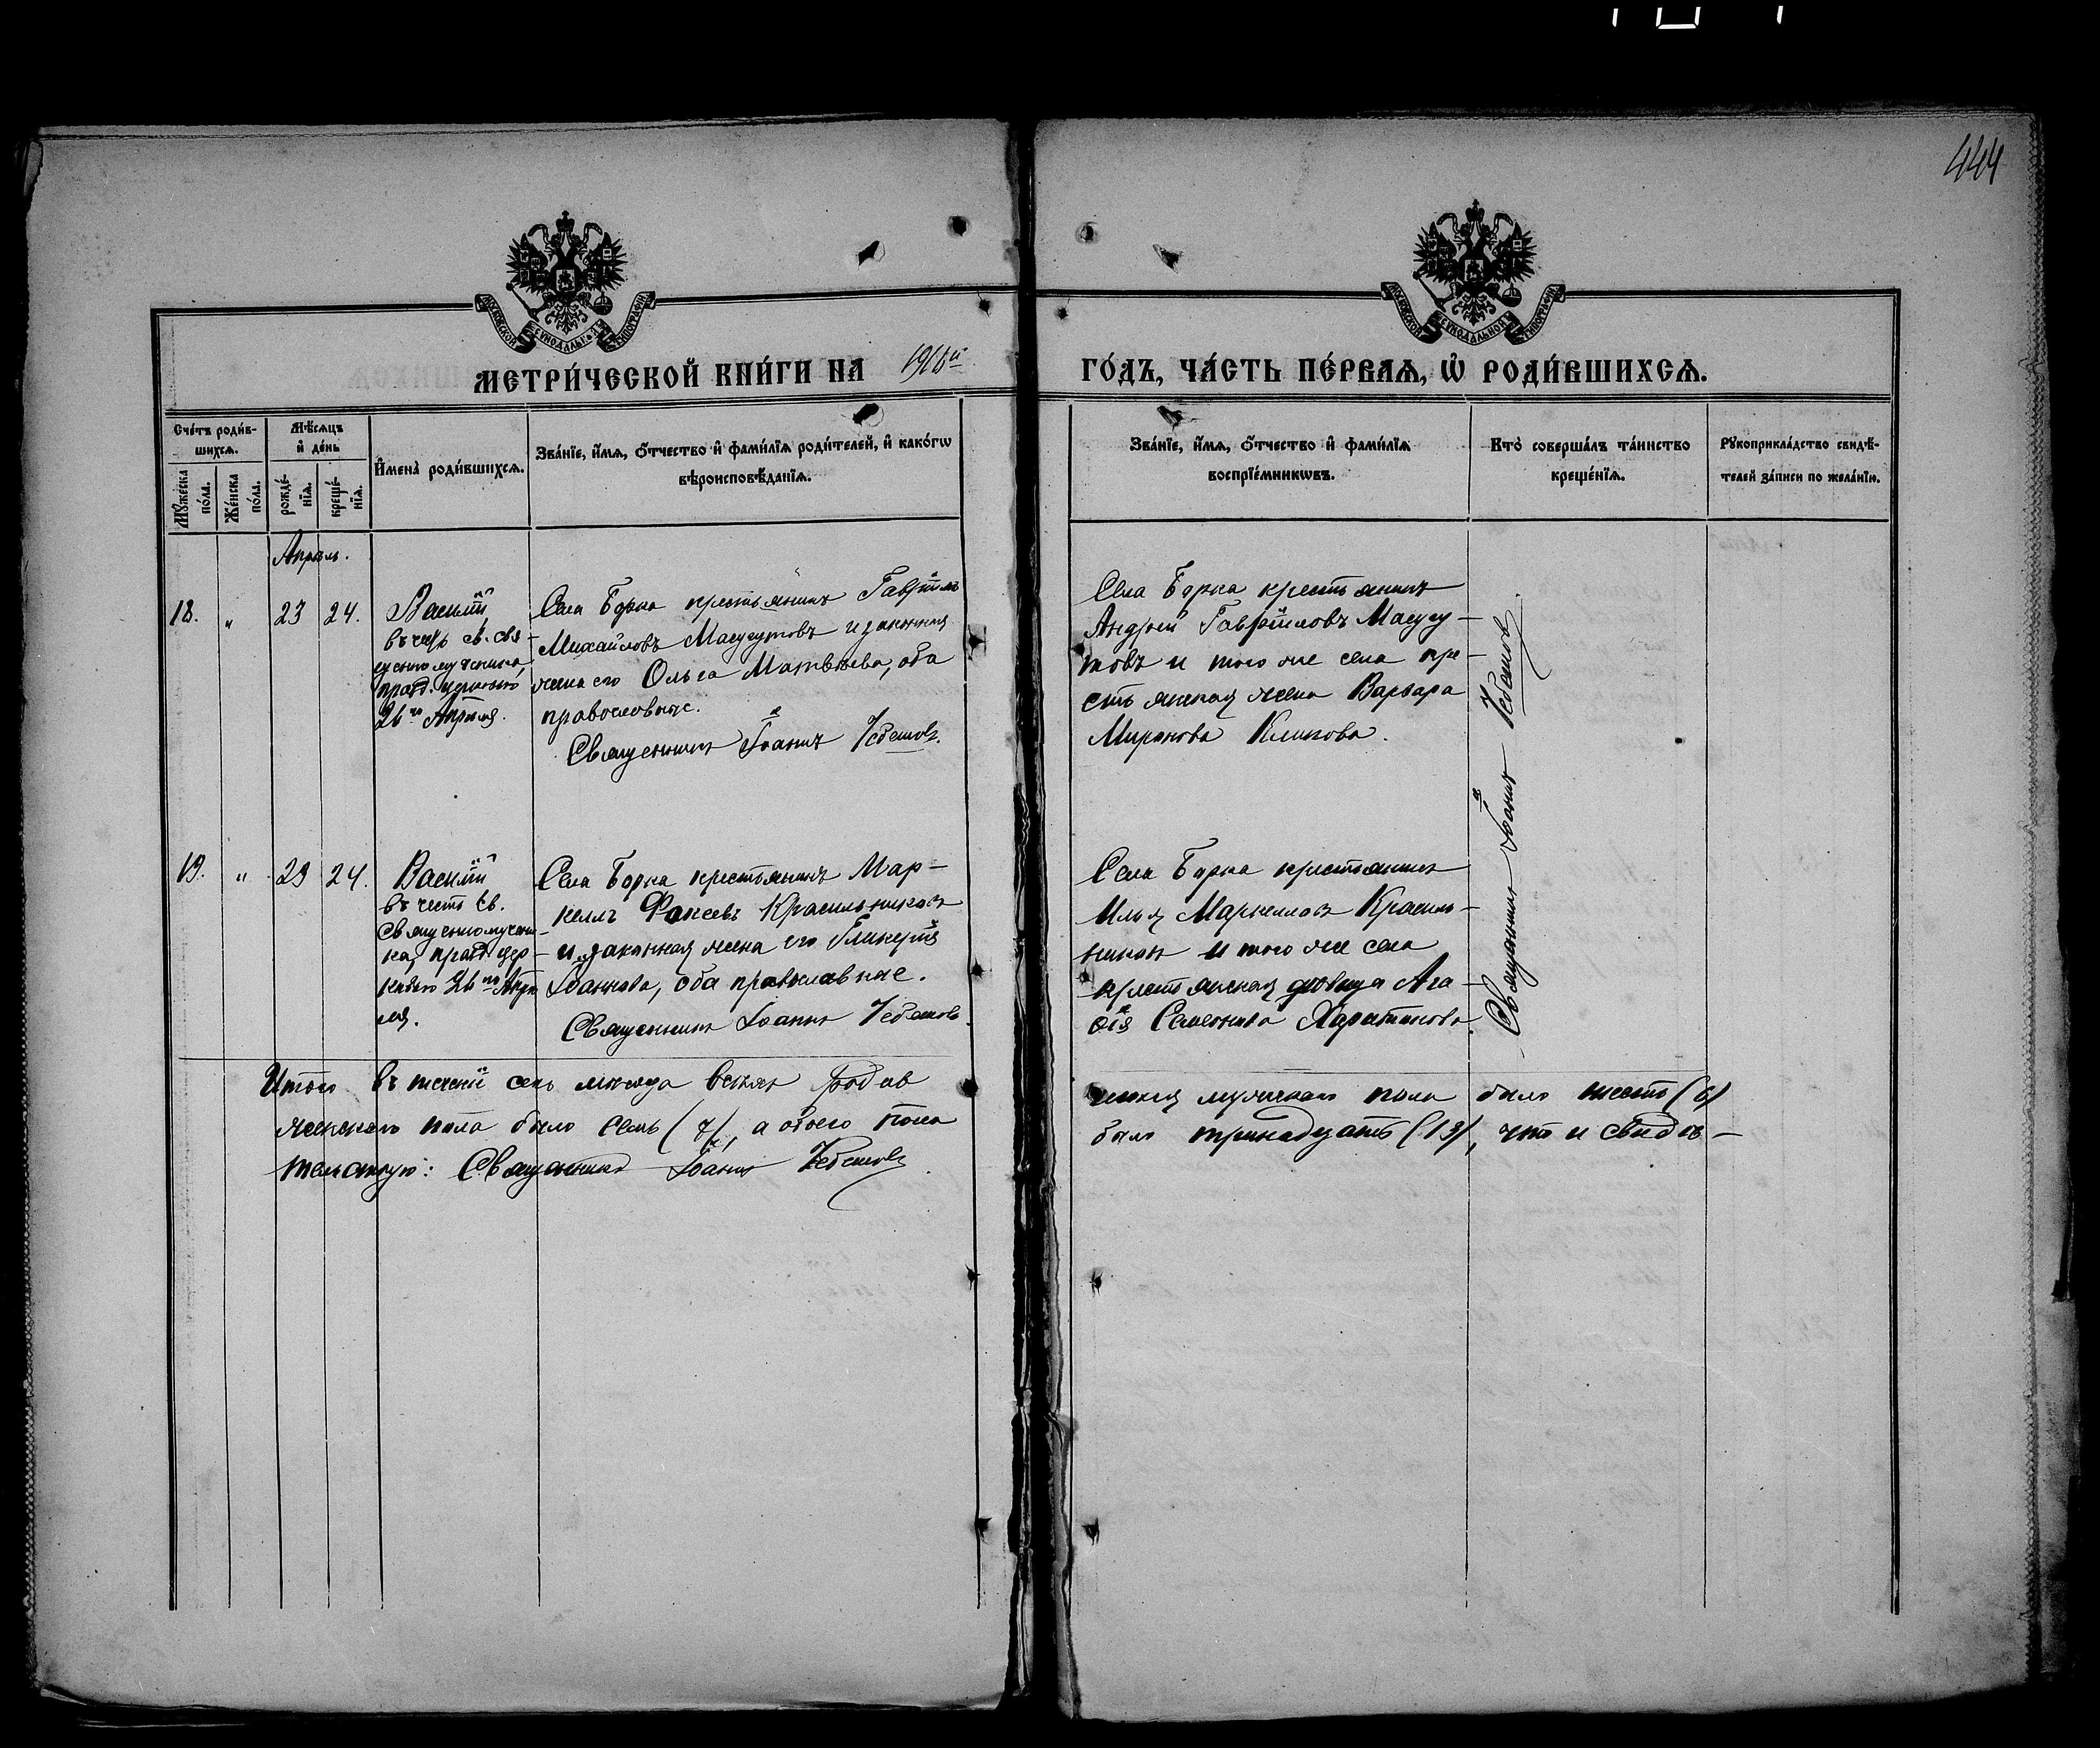 444
МЕТРИ́ЧЕСКОЙ КНИ́ГИ НА 1916й
ГО́ДЪ, ЧА́СТЬ ПЕ́РВАЯ, Ѡ РОДИ́ВШИХСЯ.
Сче́тъ роди́в-
шихся.
Мѣ́сяцъ
и де́нь
Му́жеска
по́ла.
Же́нска
по́ла.
рожде́-
нїя.
креще́-
нїя.
Имена̀ роди́вшихся.
Зва́нїе, и́мя, о́тчество и фами́лїя роди́телей, и како́гѡ
вѣроисповѣ́данїя.
Зва́нїе, и́мя, о́тчество и фами́лїя
воспрїе́мникѡвъ.
Кто̀ соверша́лъ та́инство
креще́нїя.
Рꙋкоприкла́дство свидѣ́-
телей за́писи по жела́нїю.
Апрѣль.
18. " 23 24.
Василій
въ честь св. свя-
щенномученика,
празд. церковью
26го Апрѣля.
Села Борка крестьянинъ Гавріилъ
Михайловъ Масусутовъ и законная
жена его Ольга Матвѣева, оба
православные.
Священникъ Іоаннъ
Села Борка крестьянинъ
Андрей Гавріиловъ Масусу-
товъ и того же села кре-
стьянская жена Варвара
Миронова Климова.
Священникъ Іоаннъ
19. " 23 24.
Василій
въ честь Св.
Священномучени-
ка, празд. цер-
ковью 26го Апрѣ
ля.
Села Борка крестьянинъ Мар-
келлъ Фокеевъ Красильниковъ
и законная жена его Гликерія
Іоаннова, оба православные.
Священникъ Іоаннъ
Села Борка крестьянинъ
Илья Маркелловъ Красиль-
никовъ и того же села
крестьянская дѣвица Ага-
ѳія Семенова Харитонова
Итого въ теченіи сего мѣсяца всѣхъ родив
шихся мужскаго пола было шесть (6)
женскаго пола было семь (7), а обоего пола
было тринадцать (13), что и свидѣ-
тельствую: Священникъ Іоаннъ